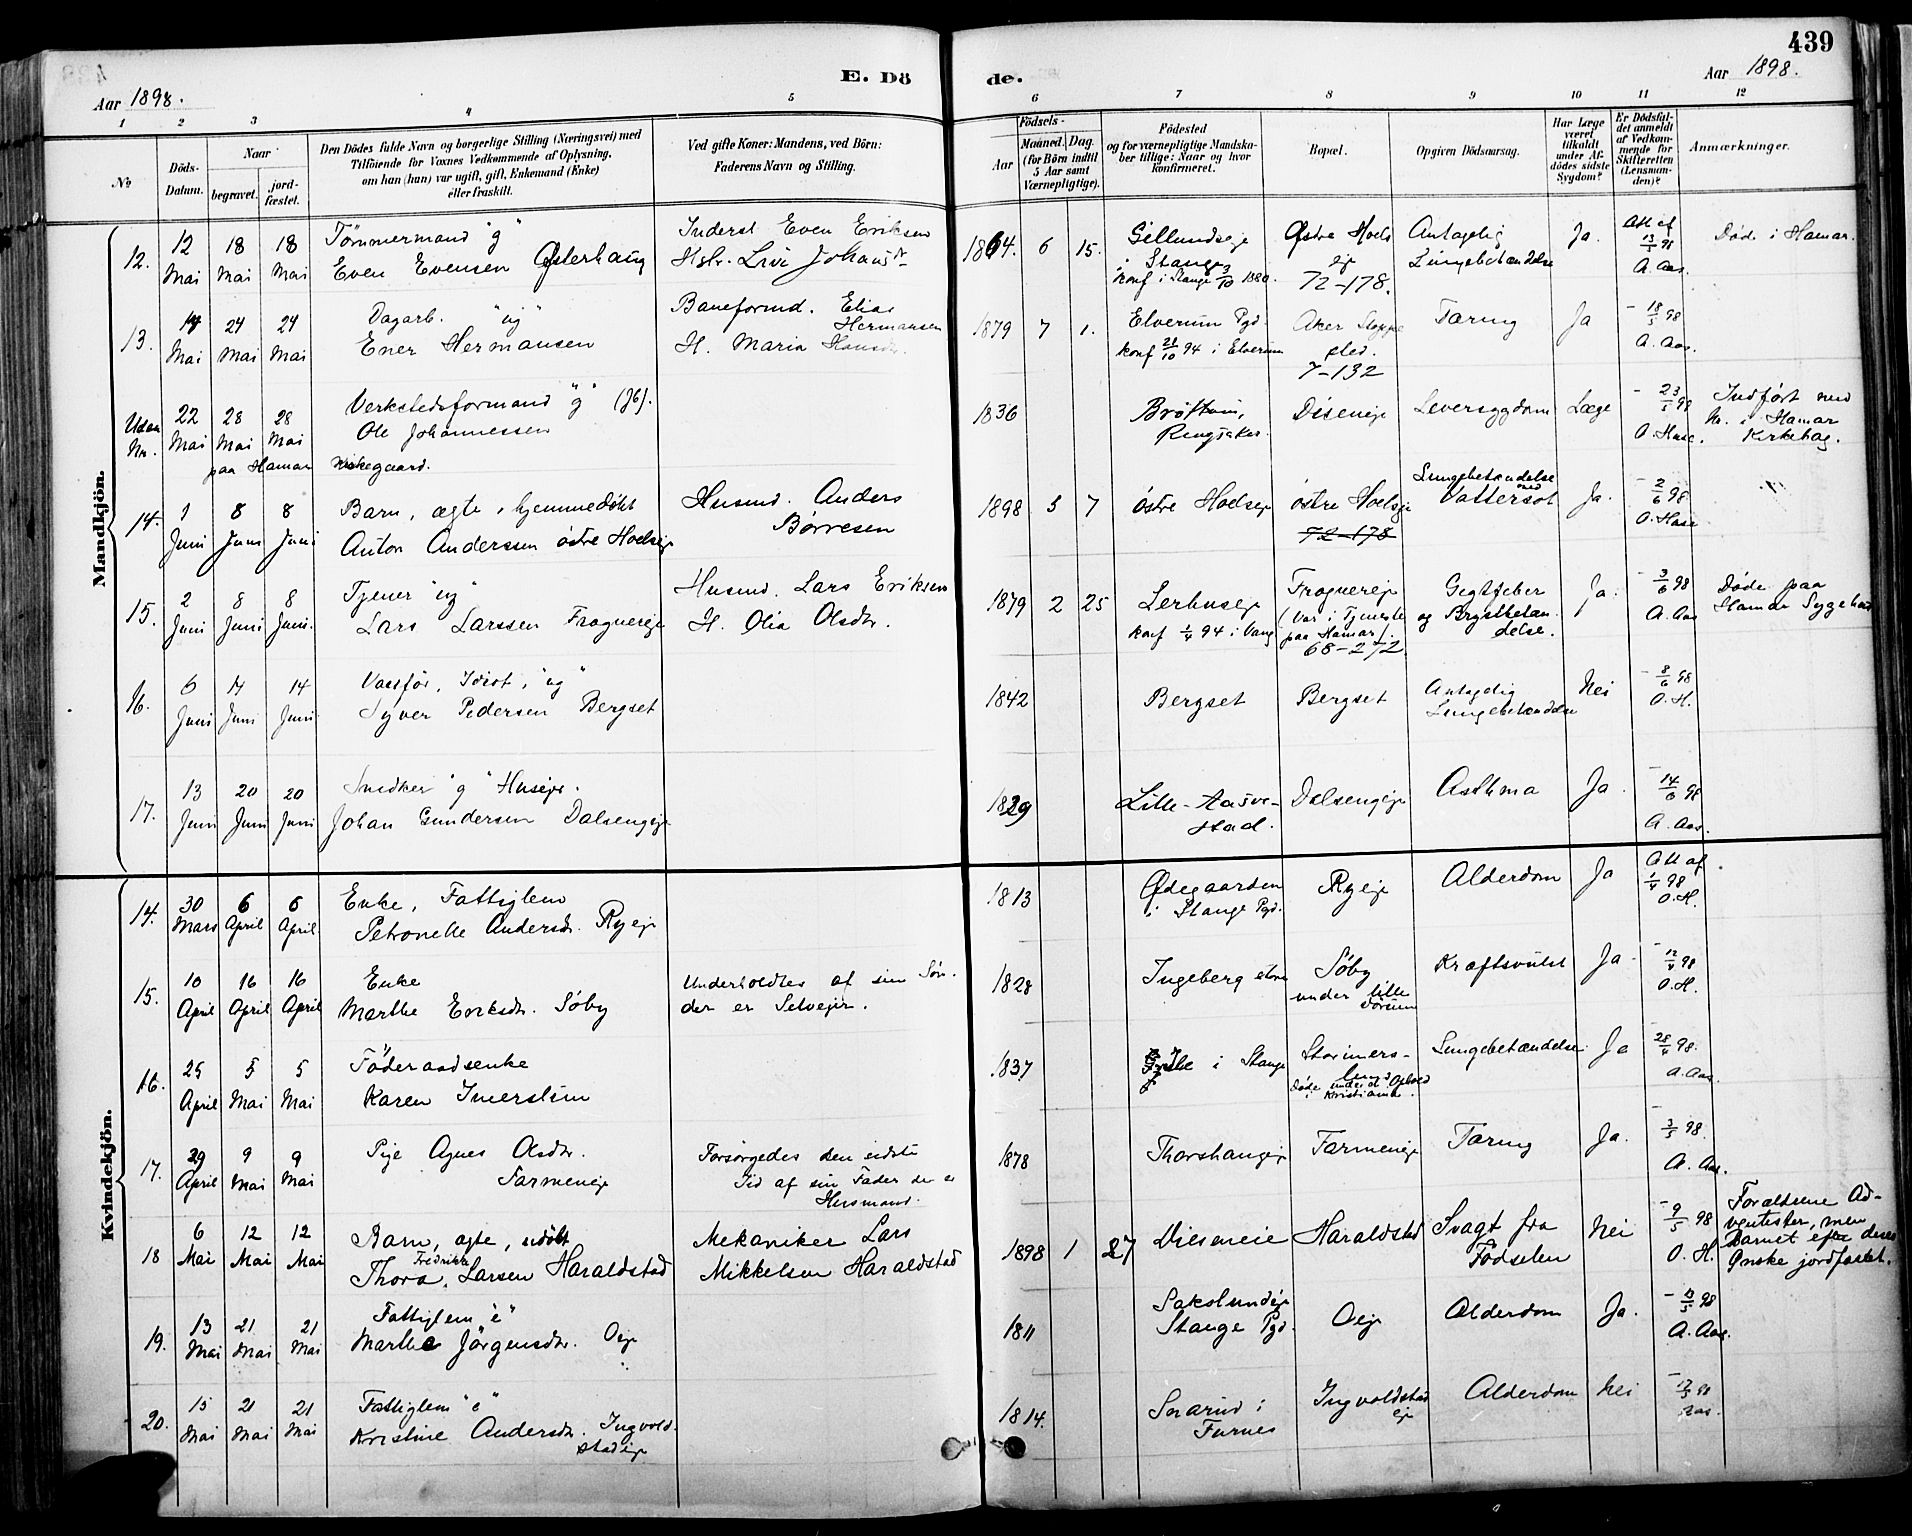 439
E. Dö
de.
Aar 1898.
Aar 1898.
1 2 3 4 5 6 7 8 9 10 11 12
No
Döds-Datum.
Naar
begravet.
jord-fæstet.
Den Dödes fulde Navn og borgerlige Stilling (Næringsvei) med
Tilföiende for Voxnes Vedkommende af Oplysning,
om han (hun) var ugift, gift, Enkemand (Enke)
eller fraskilt.
Ved gifte Koner: Mandens, ved Börn:
Faderens Navn og Stilling.
Födsels-
Aar
Maaned. Dag.
(for Börn indtil
5 Aar samt
Værnepligtige).
Födested
og for værnepligtige Mandska-
ber tillige: Naar og hvor
konfirmeret.
Bopæl.
Opgiven Dödsaarsag.
Har Læge
været
tilkaldt
under Af-
dödes sidste
Sygdom?
Er Dödsfal-
det anmeldt
af Vedkom-
mende for
Skifteretten
(Lensman-
den)?
Anmærkninger.
Mandkjön.
12. 12 Mai 18 Mai 18 Mai
Tømmermand "g"
Even Evensen Østerhaug
Inderst Even Eriksen
Hstr. Livi Johansdr
1864. 6 15.
Gillundseje
i Stange
konf i Stange 3/10 1880.
Østre Hoels
eje
72-178.
Antagelig
Lungebetændelse
Ja.
Att af
13/5 98
A. Aas.
Døde i Hamar.
13. 14 Mai 24 Mai 24 Mai
Dagarb. "ug"
Ener Hermansen
Baneformd. Elias
Hermansen
H. Maria Hansdr.
1879 7 1.
Elverum Pgd.
konf 21/10 94 i Elverum
Aker Stoppe
sted.
7-132
Tæring
Ja
- 18/5 98
A. Aas.
Uden Nr. 22 Mai 28 Mai 28 Mai
paa Hamar Kirkegaard.
Verkstedsformand "g" (76).
Ole Johannessen
1836
Brøttum,
Ringsaker.
Diseneje
Leversygdom
Læge
- 23/5 98
O. Huse.
Indført med
Nr. i Hamar
Kirkebog.
14. 1 Juni 8 Juni 8 Juni
Barn, ægte, hjemmedøbt
Anton Anderssen østre Hoelseje
Husmd. Anders
Børresen
1898 5 7
østre Hoelseje
østre Hoelseje
72-178
Lungebetændelse
med
Vattersot
Ja.
- 2/6 98
O. Huse
15. 2 Juni 8 Juni 8 Juni.
Tjener "ug"
Lars Larssen Frognereje
Husmd. Lars Eriksen
H. Olia Olsdr.
1879 2 25
Lerhuseje
konf 1/4 94 i Vang
Frognereje
(Var i Tjeneste
paa Hamar).
68-272.
Gigtfeber
og Brystbetæn-
delse.
Ja.
- 3/6 98
A. Aas
Døde paa
Hamar Sygehus
16. 6 Juni 14 Juni 14 Juni
Vanfør, Idiot, "ug"
Syver Pedersen Bergset
1842
Bergset
Bergset
Antagelig
Lungebetændelse
Nei
- 8/6 98
O. H.
17. 13 Juni 20 Juni 20 Juni
Snedker "g" Husejer.
Johan Gundersen Dalsengeje
1829
Lille-Aasve-
stad.
Dalsengeje
Asthma
Ja.
- 14/6 98
A. Aas.
Kvindekjön.
14. 30 Mars 6 April 6 April
Enke, Fattiglem
Petronelle Andersdr. Ryeje
1813
Ødegaarden
i Stange Pgd.
Ryeje
Alderdom
Ja
Att af
1/4 98
O. H.
15. 10 April 16 April 16 April
Enke
Marthe Eriksdr. Søby
Underholdtes af sin Søn.
der er Selvejer.
1828
Ingeberg store
Søby
under lille
Kræftsvulst
Ja.
- 12/4 98
O. H.
16. 25 April 5 Mai 5 Mai
Föderaadsenke
Karen Imerslun
1837
i Stange
Døde under et Ophold
i Kristiania.
Lungebetændelse.
Ja
28/4 98.
A. Aas.
17. 29 April 9 Mai 9 Mai
Pige Agnes Olsdtr.
Farmeneje
Forsørgedes den sidste
Tid af sin Fader der er
Husmand.
1878
Thorshaugeje
Farmeneje
Tæring
Ja.
- 3/5 98.
A. Aas.
18 6 Mai 12 Mai 12 Mai
Barn, ægte, udøbt
Thora Fredrikke Larsen Haraldstad
Mekaniker Lars
Mikkelsen Haraldstad
1898 1 27
Haraldstad
Svagt fra
Fødselen
Nei
- 9/5 98
O. H.
Forældrene Ad-
ventister, men
Barnet efter deres
Ønske jordfæstet.
19. 13 Mai 21 Mai 21 Mai
Fattiglem "e"
Marthe Jörgensdr. Oeje
1811
Sakslundeje
Stange Pgd.
Oeje
Alderdom
Ja.
- 13/5 98
A. Aas.
20. 15 Mai 21 Mai 21 Mai
Fattiglem "e"
Kristine Andersdr. Ingvold-
stadeje
1814.
Snarud i
Furnes
Ingvoldstad
eje
Alderdom
Nei
- 17/5 98
Aas.